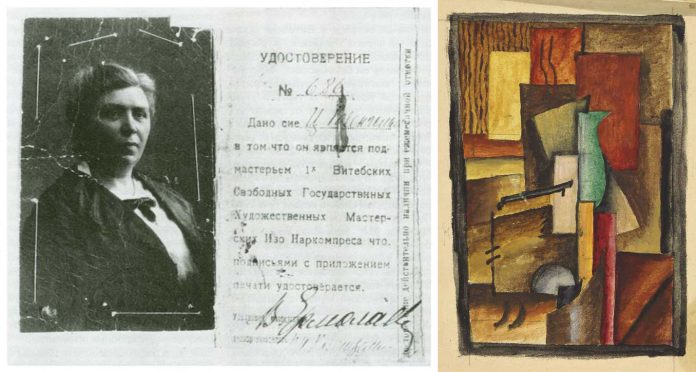 УДОСТОВЕРЕНИЕ
№ 686
Дано сие Ц
в том что он является под-
мастерьем 1х Витебских
Свободных Государственных
Художественных Мастер-
ских Изо Наркомпреса что,
подписьями с приложением
печати удостоверается.
В Ермолаева
действительно наличии при ежемесячной отметки